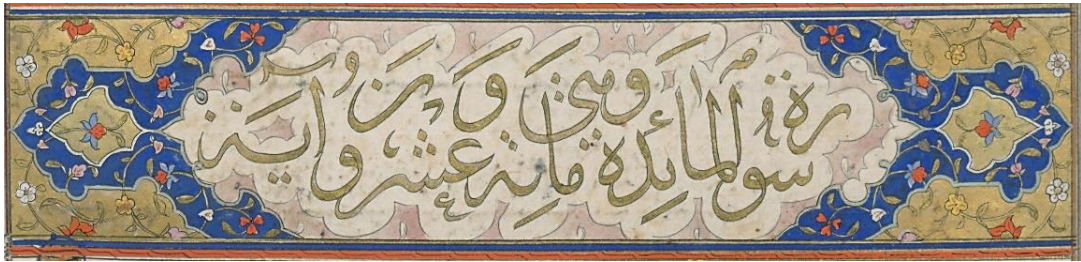 سورة المائدة مائة وعشرون اية